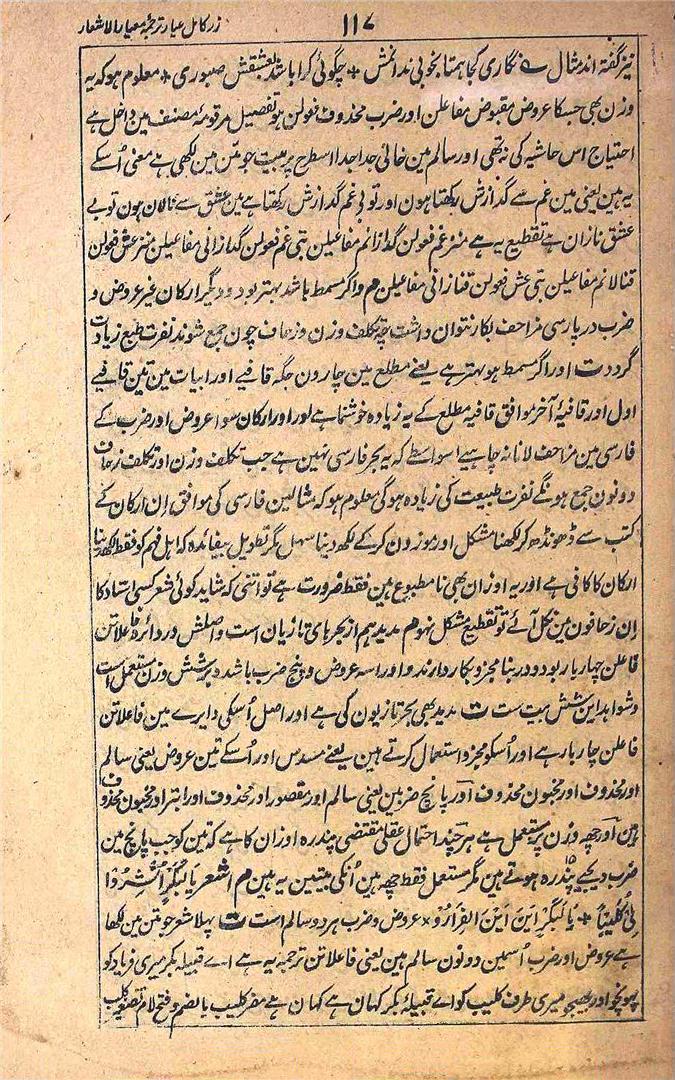 زر کامل عیار ترجمۂ معیار الاشعار
۱۱۷
نیز گفتہ اند مثال نگاری کجا ہمتا بخوبی ندانمش + چگوئی کرا باشد بعشقش صبوری + معلوم ہو کہ یہ
وزن بھی جسکا عروض مقبوض مفاعلن اور ضرب محذوف فعولن ہو تفصیل مرقومۂ مصنف مین داخل ہے
احتیاج اس حاشیہ کی نہ تھی اور سالم مین خالی جدا جدا اسطرح پر بیت جو متن مین لکھی ہے معنی اُسکے
یہ ہین یعنی مین غم سے گدازش رکھتا ہون اور تو بی غم گدازش رکھتا ہے مین عشق سے نالان ہون تو بے
عشق نازان ہے تقطیع یہ ہے منز غم فعولن گدازانم مفاعیلن تبی غم فعولن گدازانی مفاعیلن منز عش فعولن
قنالانم مفاعیلن تبی عش فعولن قنازانی مفاعیلن م و اگر مسمط باشد بہتر بود و دیگر ارکان غیر عروض و
ضرب در پارسی مزاحف بکار نتوان داشت چہ تکلف وزن و زحاف چون جمع شوند نفرت طبع زیادت
گردد ت اور اگر مسمط ہو بہتر ہے یعنے مطلع مین چارون جگہ قافیے اور ابیات مین تین قافیے
اول اور قافیۂ آخر موافق قافیہ مطلع کے یہ زیادہ خوشنما ہے اور اور ارکان سوا عروض اور ضرب کے
فارسی مین مزاحف لانا نہ چاہیے اسواسطے کہ یہ بحر فارسی نہین ہے جب تکلف وزن اور تکلف زحاف
دونون جمع ہونگے نفرت طبیعت کی زیادہ ہوگی معلوم ہو کہ مثالین فارسی کی موافق اِن ارکان کے
کتب سے ڈھونڈھ کر لکھنا مشکل اور موزون کر کے لکھ دینا سہل مگر تطویل بیفائدہ کہ اہل فہم کو فقط لکھدینا
ارکان کا کافی ہے اور یہ اوزان بھی نا مطبوع ہین فقط ضرورت ہے تو اتنی کہ شاید کوئی شعر کسی استاد کا
اِن زحافون مین نکل آئے تو تقطیع مشکل نہو م مدید ہم از بحرہای تازیان است و اصلش در دائرہ فاعلاتن
فاعلن چہار بار بود و در بنا مجزو بکار دارند و اورا سہ عروض و پنج ضرب باشد و بر شش وزن مستعمل است
و شواہد این شش بیت ست ت مدید بھی بحر تازیون کی ہے اور اصل اُسکی دایرے مین فاعلاتن
فاعلن چار بار ہے اور اُسکو مجزو استعمال کرتے ہین یعنے مسدس اور اُسکے تین عروض یعنی سالم
اور محذوف اور مخبون محذوف اور پانچ ضربین یعنی سالم اور مقصور اور محذوف اور ابتر اور مخبون محذوف
ہین اور چھہ وزن پر مستعمل ہے ہر چند احتمال عقلی مقتضی پندرہ اوزان کا ہے کہ تین کو جب پانچ مین
ضرب دیجیے پندرہ ہوتے ہین مگر مستعمل فقط چھہ ہین اُنکی بیتین یہ ہین م شعر یَا لَبَکْرٍ اَنْشِرُوْا
لِیْ کُلَیْبًا + یَا لَبَکْرٍ اَیْنَ اَیْنَ الْفِرَارُو × عروض و ضرب ہر دو سالم است ت پہلا شعر جو متن مین لکھا
ہے عروض اور ضرب اُسمین دونون سالم ہین یعنی فاعلاتن ترجمہ یہ ہے اے قبیلہ بکر میری فریاد کو
پہونچو اور بھیجو میری طرف کلیب کو اے قبیلۂ بکر کہان ہے کہان ہے مفر کلیب بالضم و فتح لام تصغیر کلب